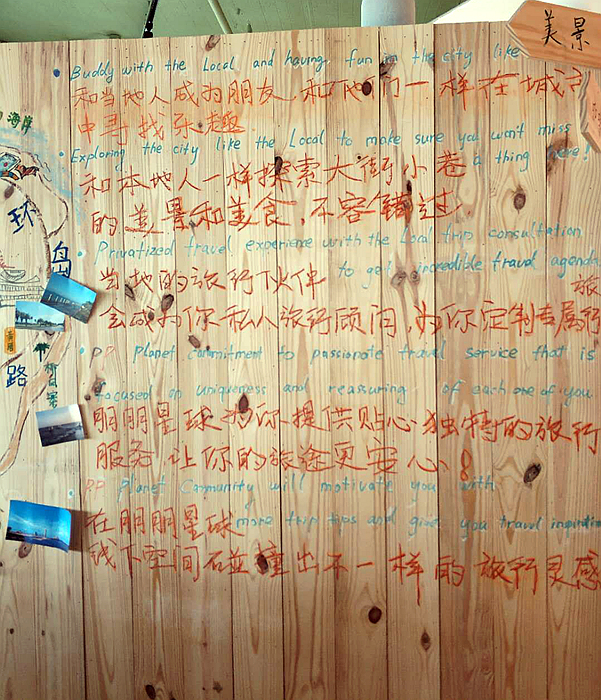 美景
海岸
• Buddy with the Local and having fun in the city like
和当地人成为朋友,和他们一样在城市
中寻找乐趣
• Exploring the city like the Local to make sure you won't miss
a thing here!
和本地人一样探索大街小巷
的美景和美食,不容错过
环
岛
路
• Privatized travel experience with the Local trip consultation
to get incredible travel agenda
当地的旅行伙伴
会成为你私人旅行顾问,为你定制专属行
旅
• PP planet commitment to passionate travel service that is
focused on uniqueness and reassuring of each one of you
朋朋星球为你提供贴心独特的旅行
服务 让你的旅途更安心!
• PP Planet Community will motivate you with
more trip tips and give you travel inspiration
在朋朋星球
线下空间碰撞出不一样的旅行灵感